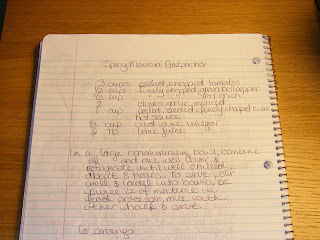 Spicy Mexican Gazpacho
3 cups peeled, chopped tomato
1/2 cup finely chopped green bell pepper
1/2 cup red onion
2 cloves garlic, minced
1 cup peeled, seeded, finely chopped cuke
hot sauce
1/3 cup red wine vinegar
2 Tb lime juice
In a large nonaluminum bowl, combine
all and mix well. Cover &
refrigerate until well chilled,
about 3 hours. To serve, stir
well & ladle into bowls, or
puree 1/2 of mixture in
food processor, mix with
other half & serve.
6 servings